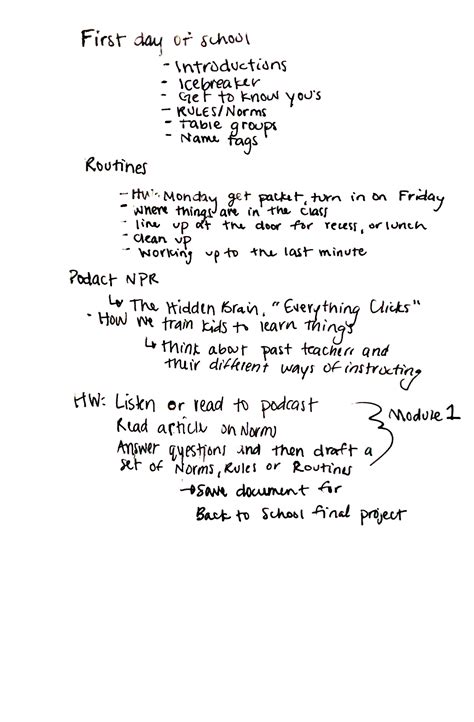 First day of school
- Introductions
- Icebreaker
- Get to know you's
- RULES/Norms
- Table groups
- Name tags
Routines
- HW: Monday get packet, turn in on Friday
- where things are in the class
- line up at the door for recess, or lunch
- clean up
- working up to the last minute
Podact NPR
↳ The Hidden Brain, "Everything Clicks"
- How we train kids to learn things
↳ think about past teachers and
their different ways of instructing
HW: Listen or read to podcast
Read article on Norms
Answer questions and then draft a
set of Norms, Rules or Routines
Module 1
→ Save document for
Back to School final project